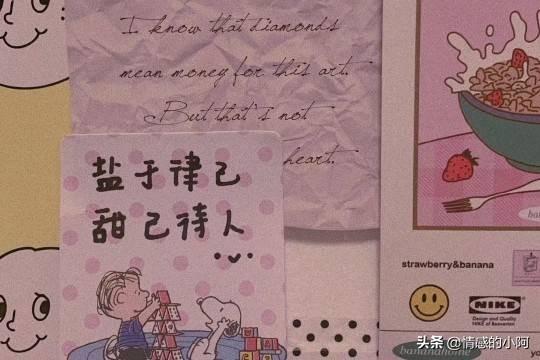 I know that diamonds
mean money for this art.
But that's not
heart.
盐于律己
甜己待人
strawberry&banana
NIKE
Design and Quality
NIKE of Bananian
bananahome
头条 @情感的小阿